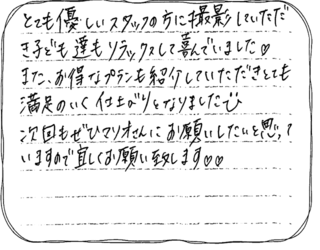 とても優しいスタッフの方に撮影していただ
き子ども達もリラックスして喜んでいました♡
また、お得なプランも紹介していただきとても
満足のいく仕上がりとなりました
次回もぜひマリオさんにお願いしたいと思って
いますので宜しくお願い致します♡♡